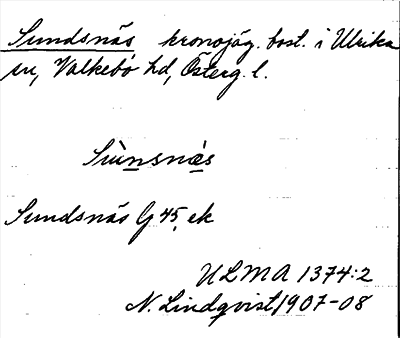 Sundsnäs kronojäg. bost. i Ulrika
sn, Valkebo hd, Österg. l.
Sùnsnæs
Sundsnäs G 45, ek
ULMA 1374:2
N. Lindqvist 1907-08